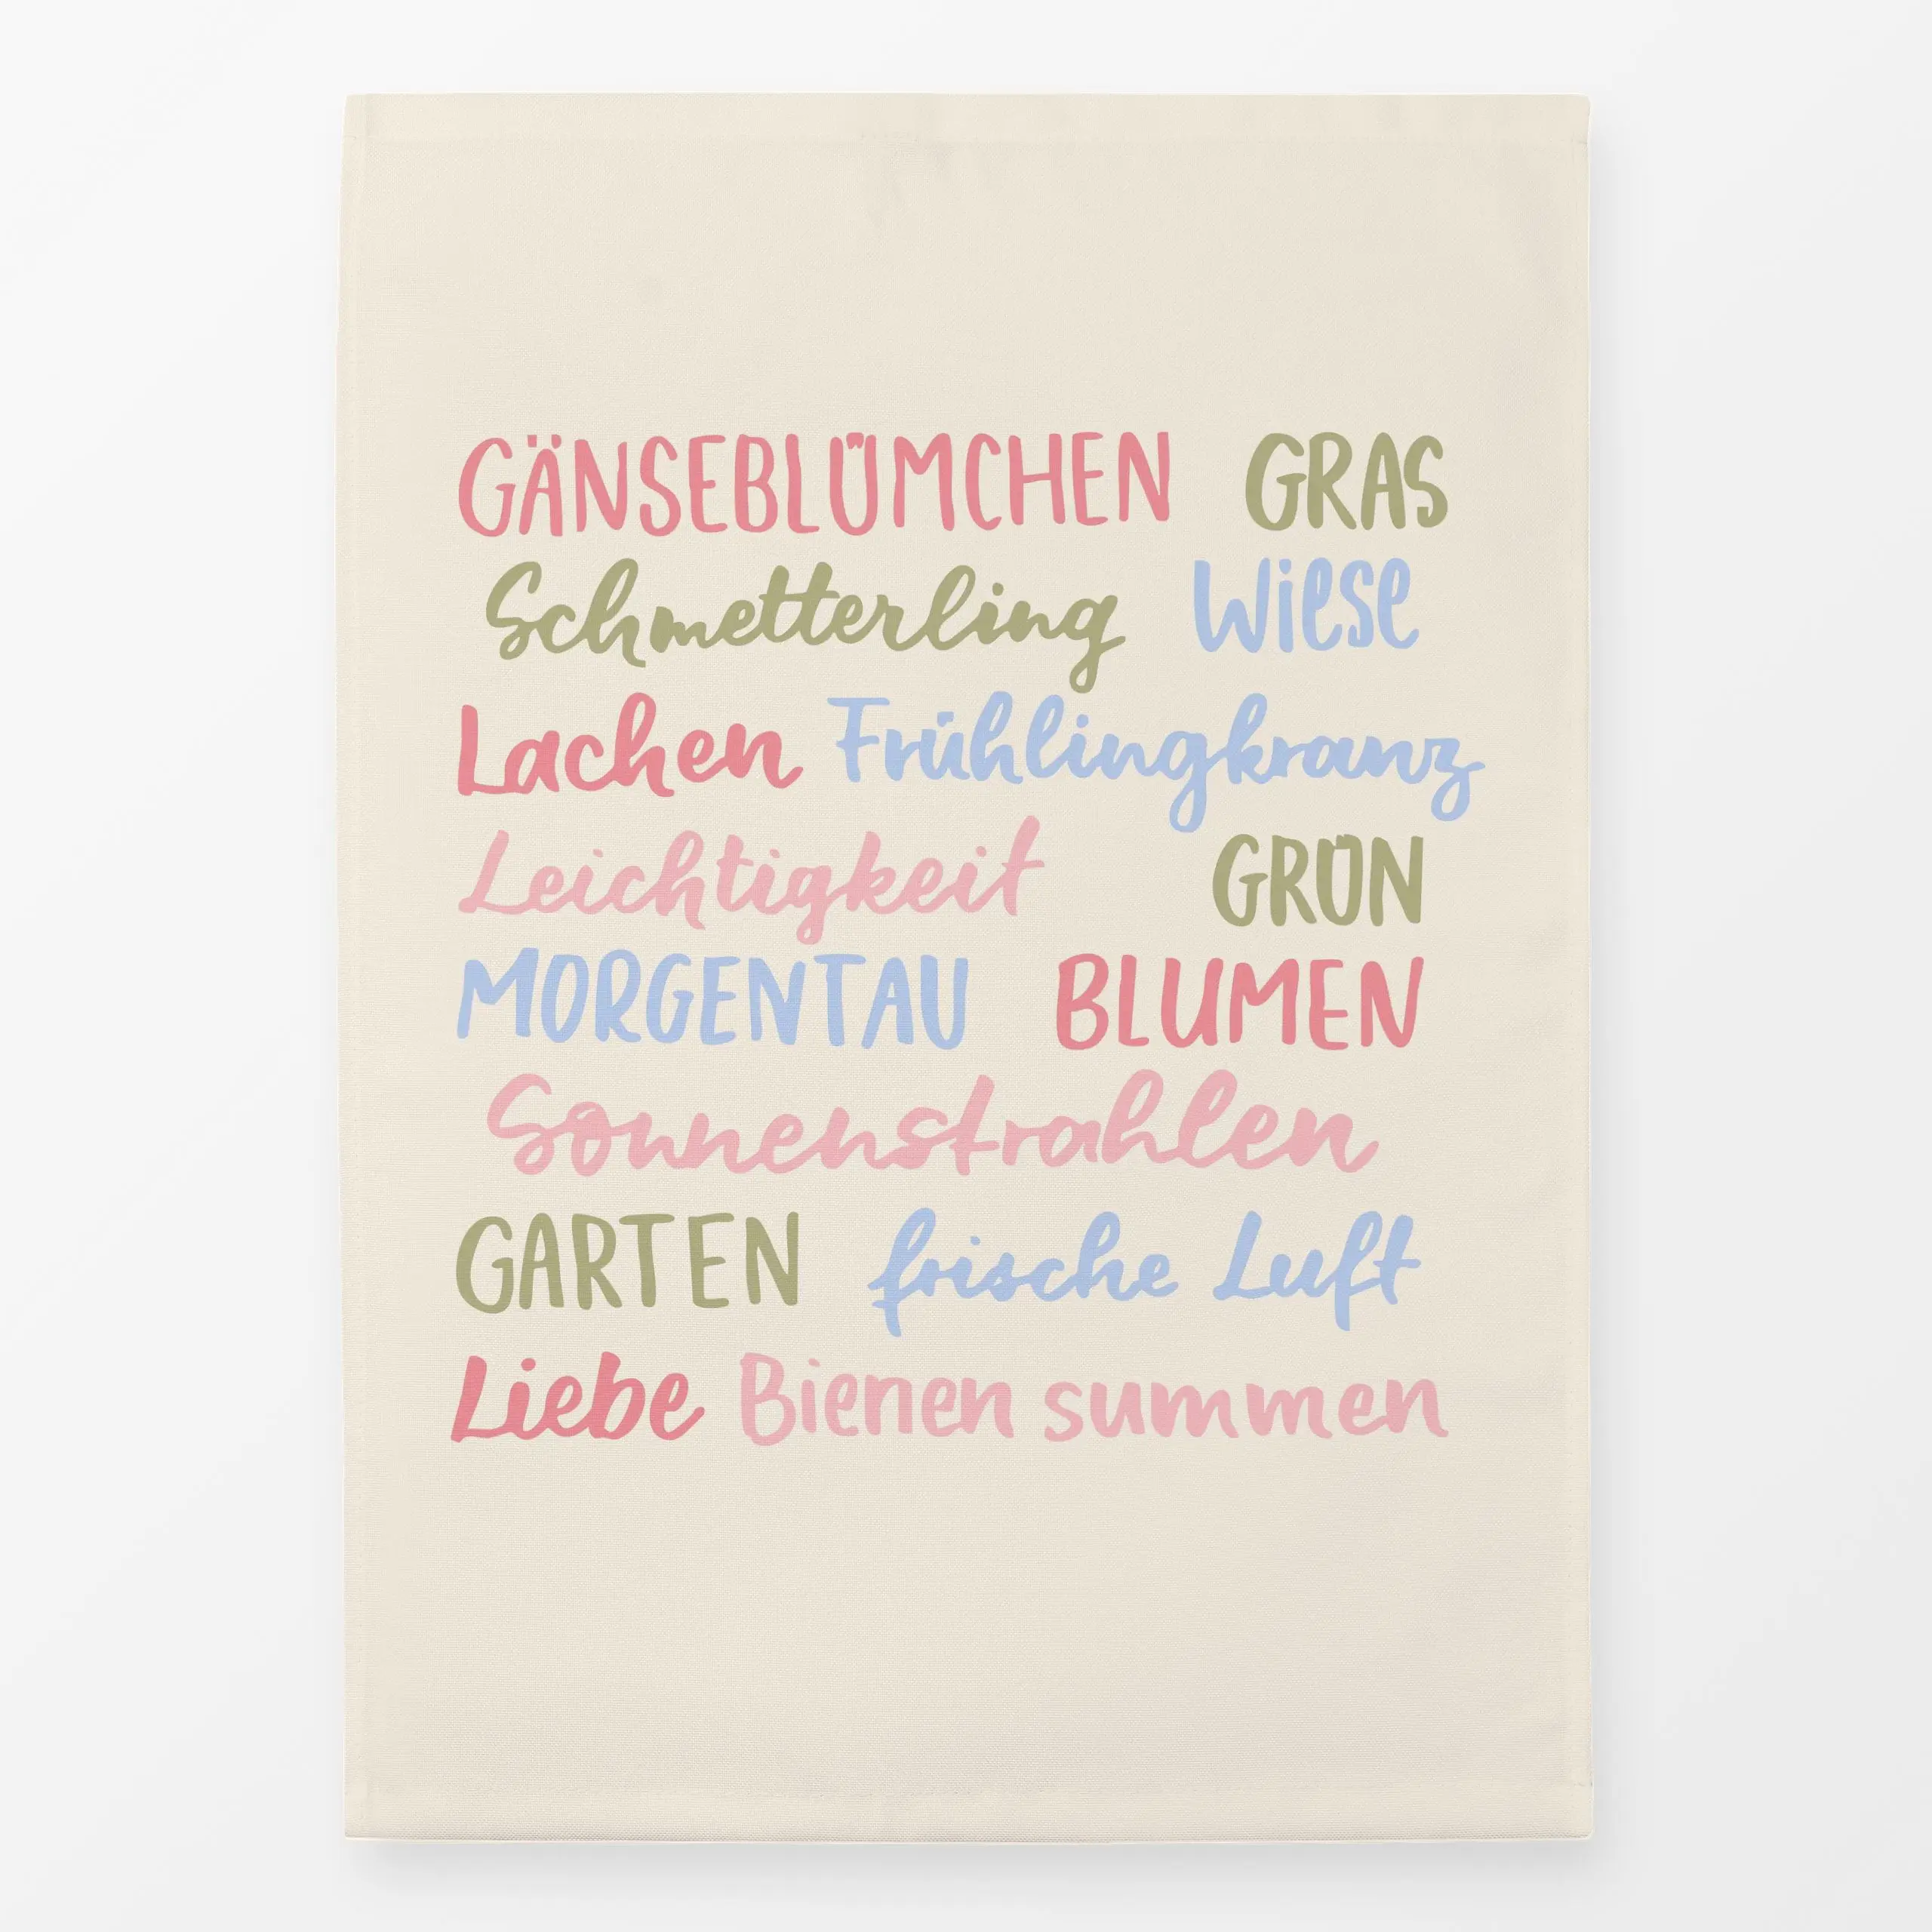 GÄNSEBLÜMCHEN GRAS
Schmetterling Wiese
Lachen Frühlingkranz
Leichtigkeit GRÜN
MORGENTAU BLUMEN
Sonnenstrahlen
GARTEN frische Luft
Liebe Bienen summen